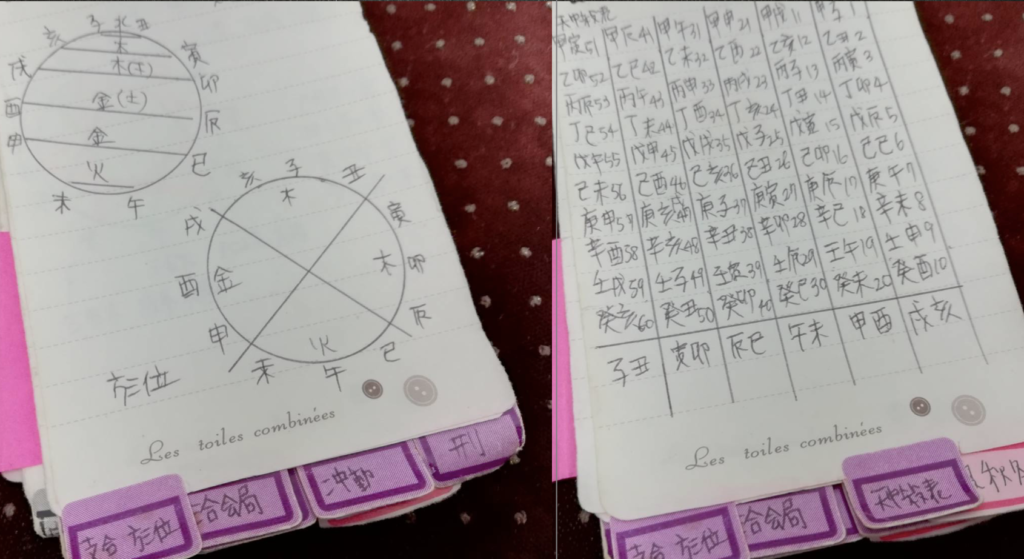 亥 子 丑
戌 木 寅
木(土) 卯
酉 金(土) 辰
申 金 巳
火
未 午
亥 子 丑
戌 木 寅
酉 金 木 卯
申 辰
火 巳
未 午
方位
Les toiles combinées
支合 方位
三合会局
冲動
刑
天中殺表
甲寅51 甲辰41 甲午31 甲申21 甲戌11 甲子1
乙卯52 乙巳42 乙未32 乙酉22 乙亥12 乙丑2
丙辰53 丙午43 丙申33 丙戌23 丙子13 丙寅3
丁巳54 丁未44 丁酉34 丁亥24 丁丑14 丁卯4
戊午55 戊申45 戊戌35 戊子25 戊寅15 戊辰5
己未56 己酉46 己亥36 己丑26 己卯16 己巳6
庚申57 庚戌47 庚子37 庚寅27 庚辰17 庚午7
辛酉58 辛亥48 辛丑38 辛卯28 辛巳18 辛未8
壬戌59 壬子49 壬寅39 壬辰29 壬午19 壬申9
癸亥60 癸丑50 癸卯40 癸巳30 癸未20 癸酉10
子丑 寅卯 辰巳 午未 申酉 戌亥
Les toiles combinées
支合 方位
合会局
天中殺表